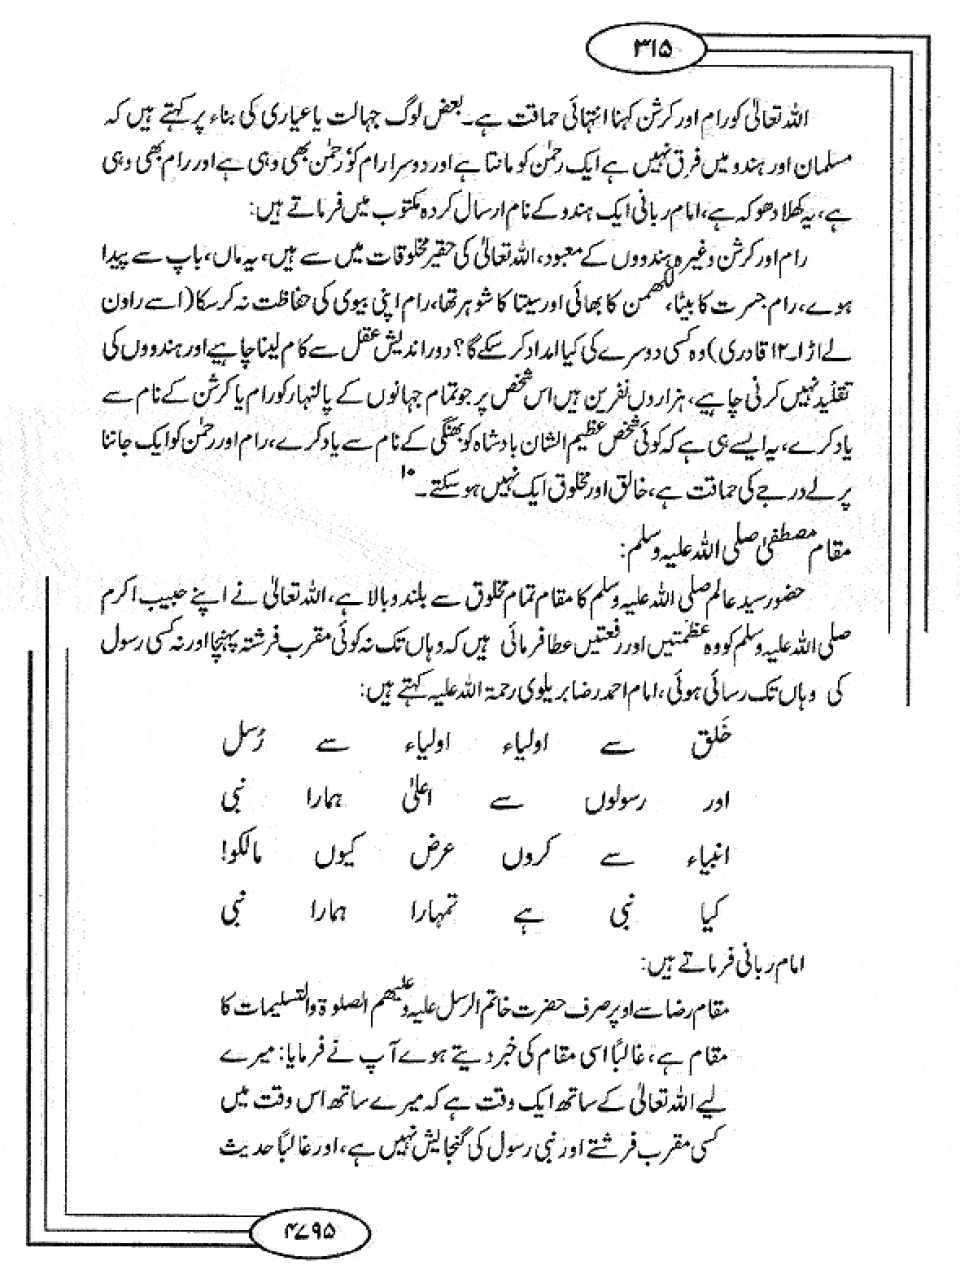 ۳۱۵
اللہ تعالیٰ کو رام اور کرشن کہنا انتہائی حماقت ہے۔ بعض لوگ جہالت یا عیاری کی بناء پر کہتے ہیں کہ
مسلمان اور ہندو میں فرق نہیں ہے ایک رحمٰن کو مانتا ہے اور دوسرا رام کو' رحمٰن بھی وہی ہے اور رام بھی وہی
ہے، یہ کھلا دھوکہ ہے، امام ربانی ایک ہندو کے نام ارسال کردہ مکتوب میں فرماتے ہیں:
رام اور کرشن وغیرہ ہندووں کے معبود، اللہ تعالیٰ کی حقیر مخلوقات میں سے ہیں، یہ ماں، باپ سے پیدا
ہوے، رام جسرت کا بیٹا، لکھمن کا بھائی اور سیتا کا شوہر تھا، رام اپنی بیوی کی حفاظت نہ کر سکا (اسے راون
لے اڑا۔ ۱۲ قادری) وہ کسی دوسرے کی کیا امداد کر سکے گا؟ دور اندیش عقل سے کام لینا چاہیے اور ہندووں کی
تقلید نہیں کرنی چاہیے، ہزاردں نفرین ہیں اس شخص پر جو تمام جہانوں کے پالنہار کو رام یا کرشن کے نام سے
یاد کرے، یہ ایسے ہی ہے کہ کوئی شخص عظیم الشان بادشاہ کو بھنگی کے نام سے یاد کرے، رام اور رحمن کو ایک جاننا
پرلے درجے کی حماقت ہے، خالق اور مخلوق ایک نہیں ہو سکتے۔ ۱۰
مقام مصطفیٰ صلی اللہ علیہ وسلم:
حضور سید عالم صلی اللہ علیہ وسلم کا مقام تمام مخلوق سے بلند و بالا ہے، اللہ تعالیٰ نے اپنے حبیب اکرم
صلی اللہ علیہ وسلم کو وہ عظمتیں اور رفعتیں عطا فرمائی ہیں کہ وہاں تک نہ کوئی مقرب فرشتہ پہنچا اور نہ کسی رسول
کی وہاں تک رسائی ہوئی، امام احمد رضا بریلوی رحمۃ اللہ علیہ کہتے ہیں:
خَلق سے اولیاء اولیاء سے رُسل
اور رسولوں سے اعلیٰ ہمارا نبی
انبیاء سے کروں عرض کیوں مالکو!
کیا نبی ہے تمہارا ہمارا نبی
امام ربانی فرماتے ہیں:
مقام رضا سے اوپر صرف حضرت خاتم الرسل علیہ وعلیھم الصلوۃ والتسلیمات کا
مقام ہے، غالبًا اسی مقام کی خبر دیتے ہوے آپ نے فرمایا: میرے
لیے اللہ تعالیٰ کے ساتھ ایک وقت ہے کہ میرے ساتھ اس وقت میں
کسی مقرب فرشتے اور نبی رسول کی گنجایش نہیں ہے، اور غالبًا حدیث
۴۷۹۵